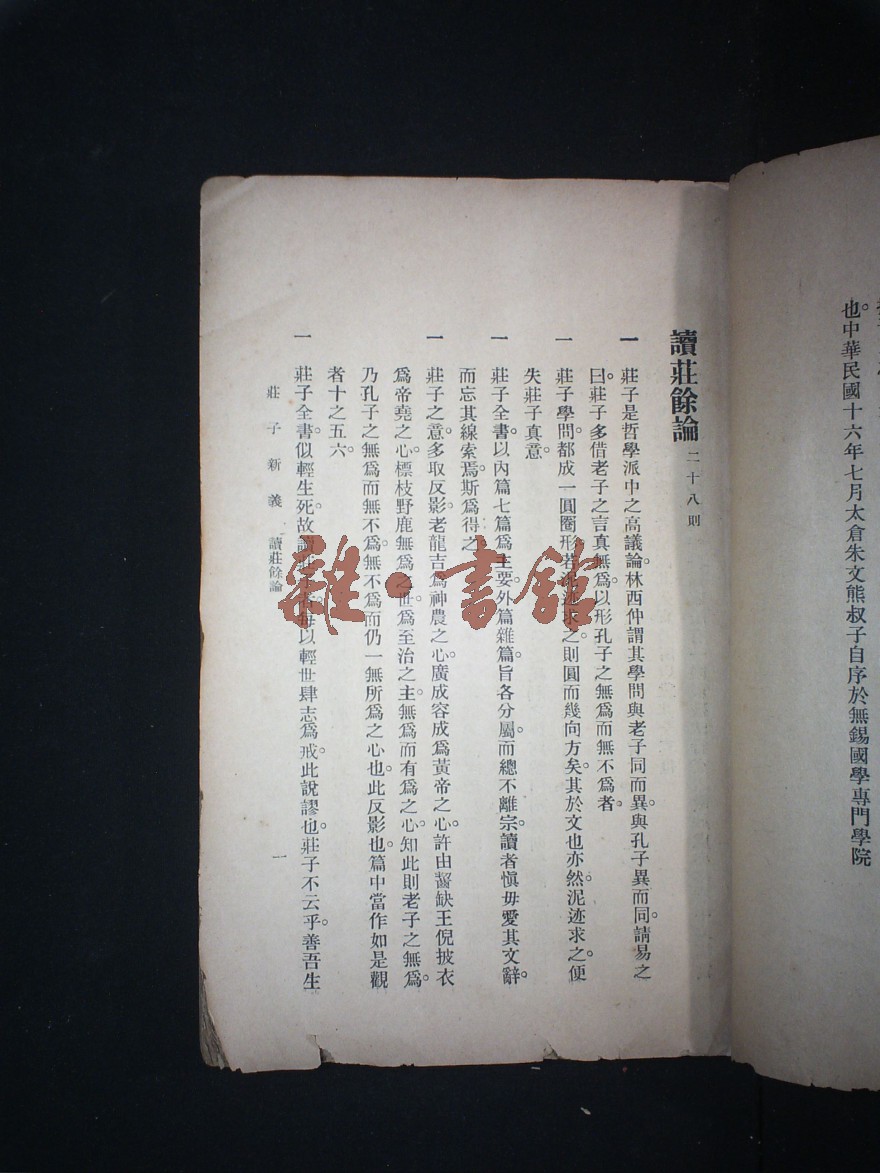 也。中華民國十六年七月太倉朱文熊叔子自序於無錫國學專門學院
讀莊餘論 二十八則
一 莊子是哲學派中之高議論。林西仲謂其學問與老子同而異。與孔子異而同。請易之
曰。莊子多借老子之言真無爲。以形孔子之無爲而無不爲者。
一 莊子學問。都成一圓圈形。若泥迹求之。則圓而幾向方矣。其於文也亦然。泥迹求之。便
失莊子真意。
一 莊子全書。以內篇七篇爲主要。外篇雜篇。旨各分屬。而總不離宗。讀者愼毋愛其文辭。
而忘其線索焉。斯爲得之。
一 莊子之意。多取反影。老龍吉爲神農之心。廣成容成爲黃帝之心。許由齧缺王倪披衣
爲帝堯之心。標枝野鹿無爲之世。爲至治之主。無爲而有爲之心。知此則老子之無爲。
乃孔子之無爲而無不爲。無不爲而仍一無所爲之心也。此反影也。篇中當作如是觀
者十之五六。
一 莊子全書。似輕生死。故讀莊者每以輕世肆志爲戒。此說謬也。莊子不云乎。善吾生
莊子新義 讀莊餘論 一
雜·書館